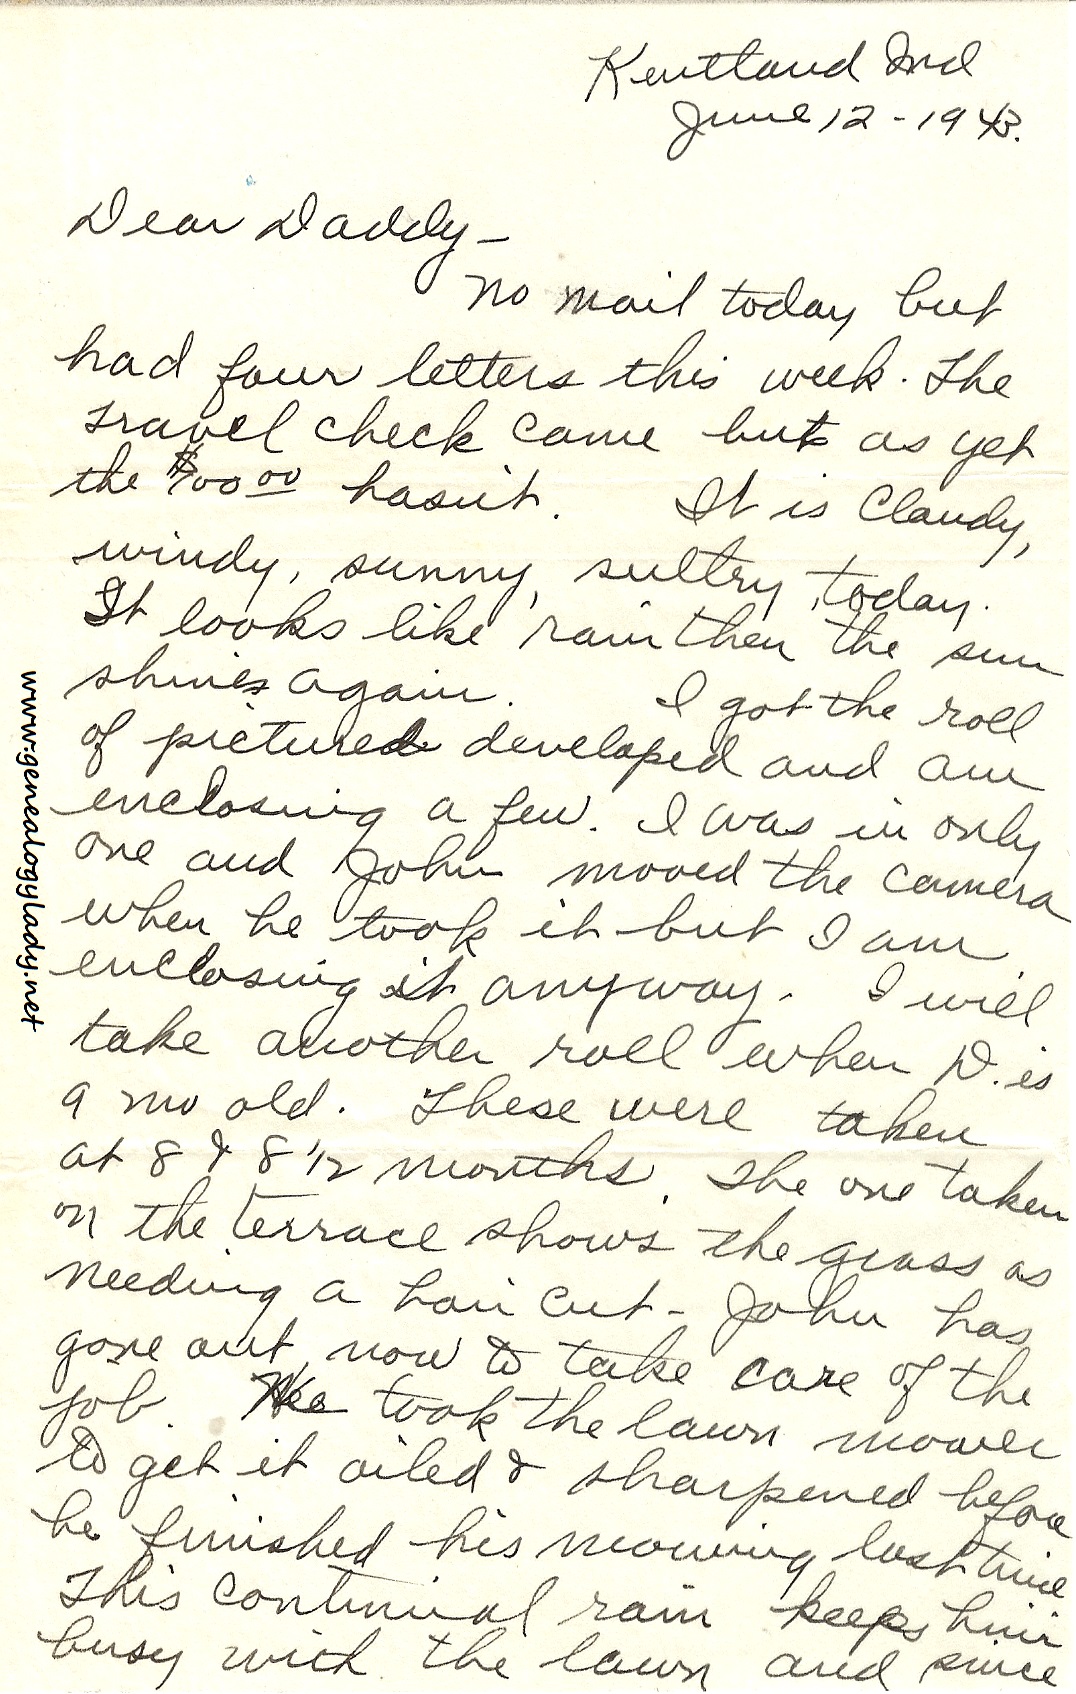 Kentland Ind
June 12 - 1943.
Dear Daddy -
No mail today but
had four letters this week. The
travel check came but as yet
the $100 00 hasn't. It is Cloudy,
windy, sunny, sultry, today.
It looks like rain then the sun
shines again. I got the roll
of pictures developed and am
enclosing a few. I was in only
one and John moved the camera
when he took it but I am
enclosing it anyway. I will
take another roll when D. is
9 mo old. These were taken
at 8 & 8 1/2 months. The one taken
on the terrace shows the grass as
needing a hair cut - John has
gone out now to take care of the
job. We took the lawn mower
to get it oiled & sharpened before
he finished his mowing last time
This continual rain keeps him
busy with the lawn and since
www.genealogylady.net